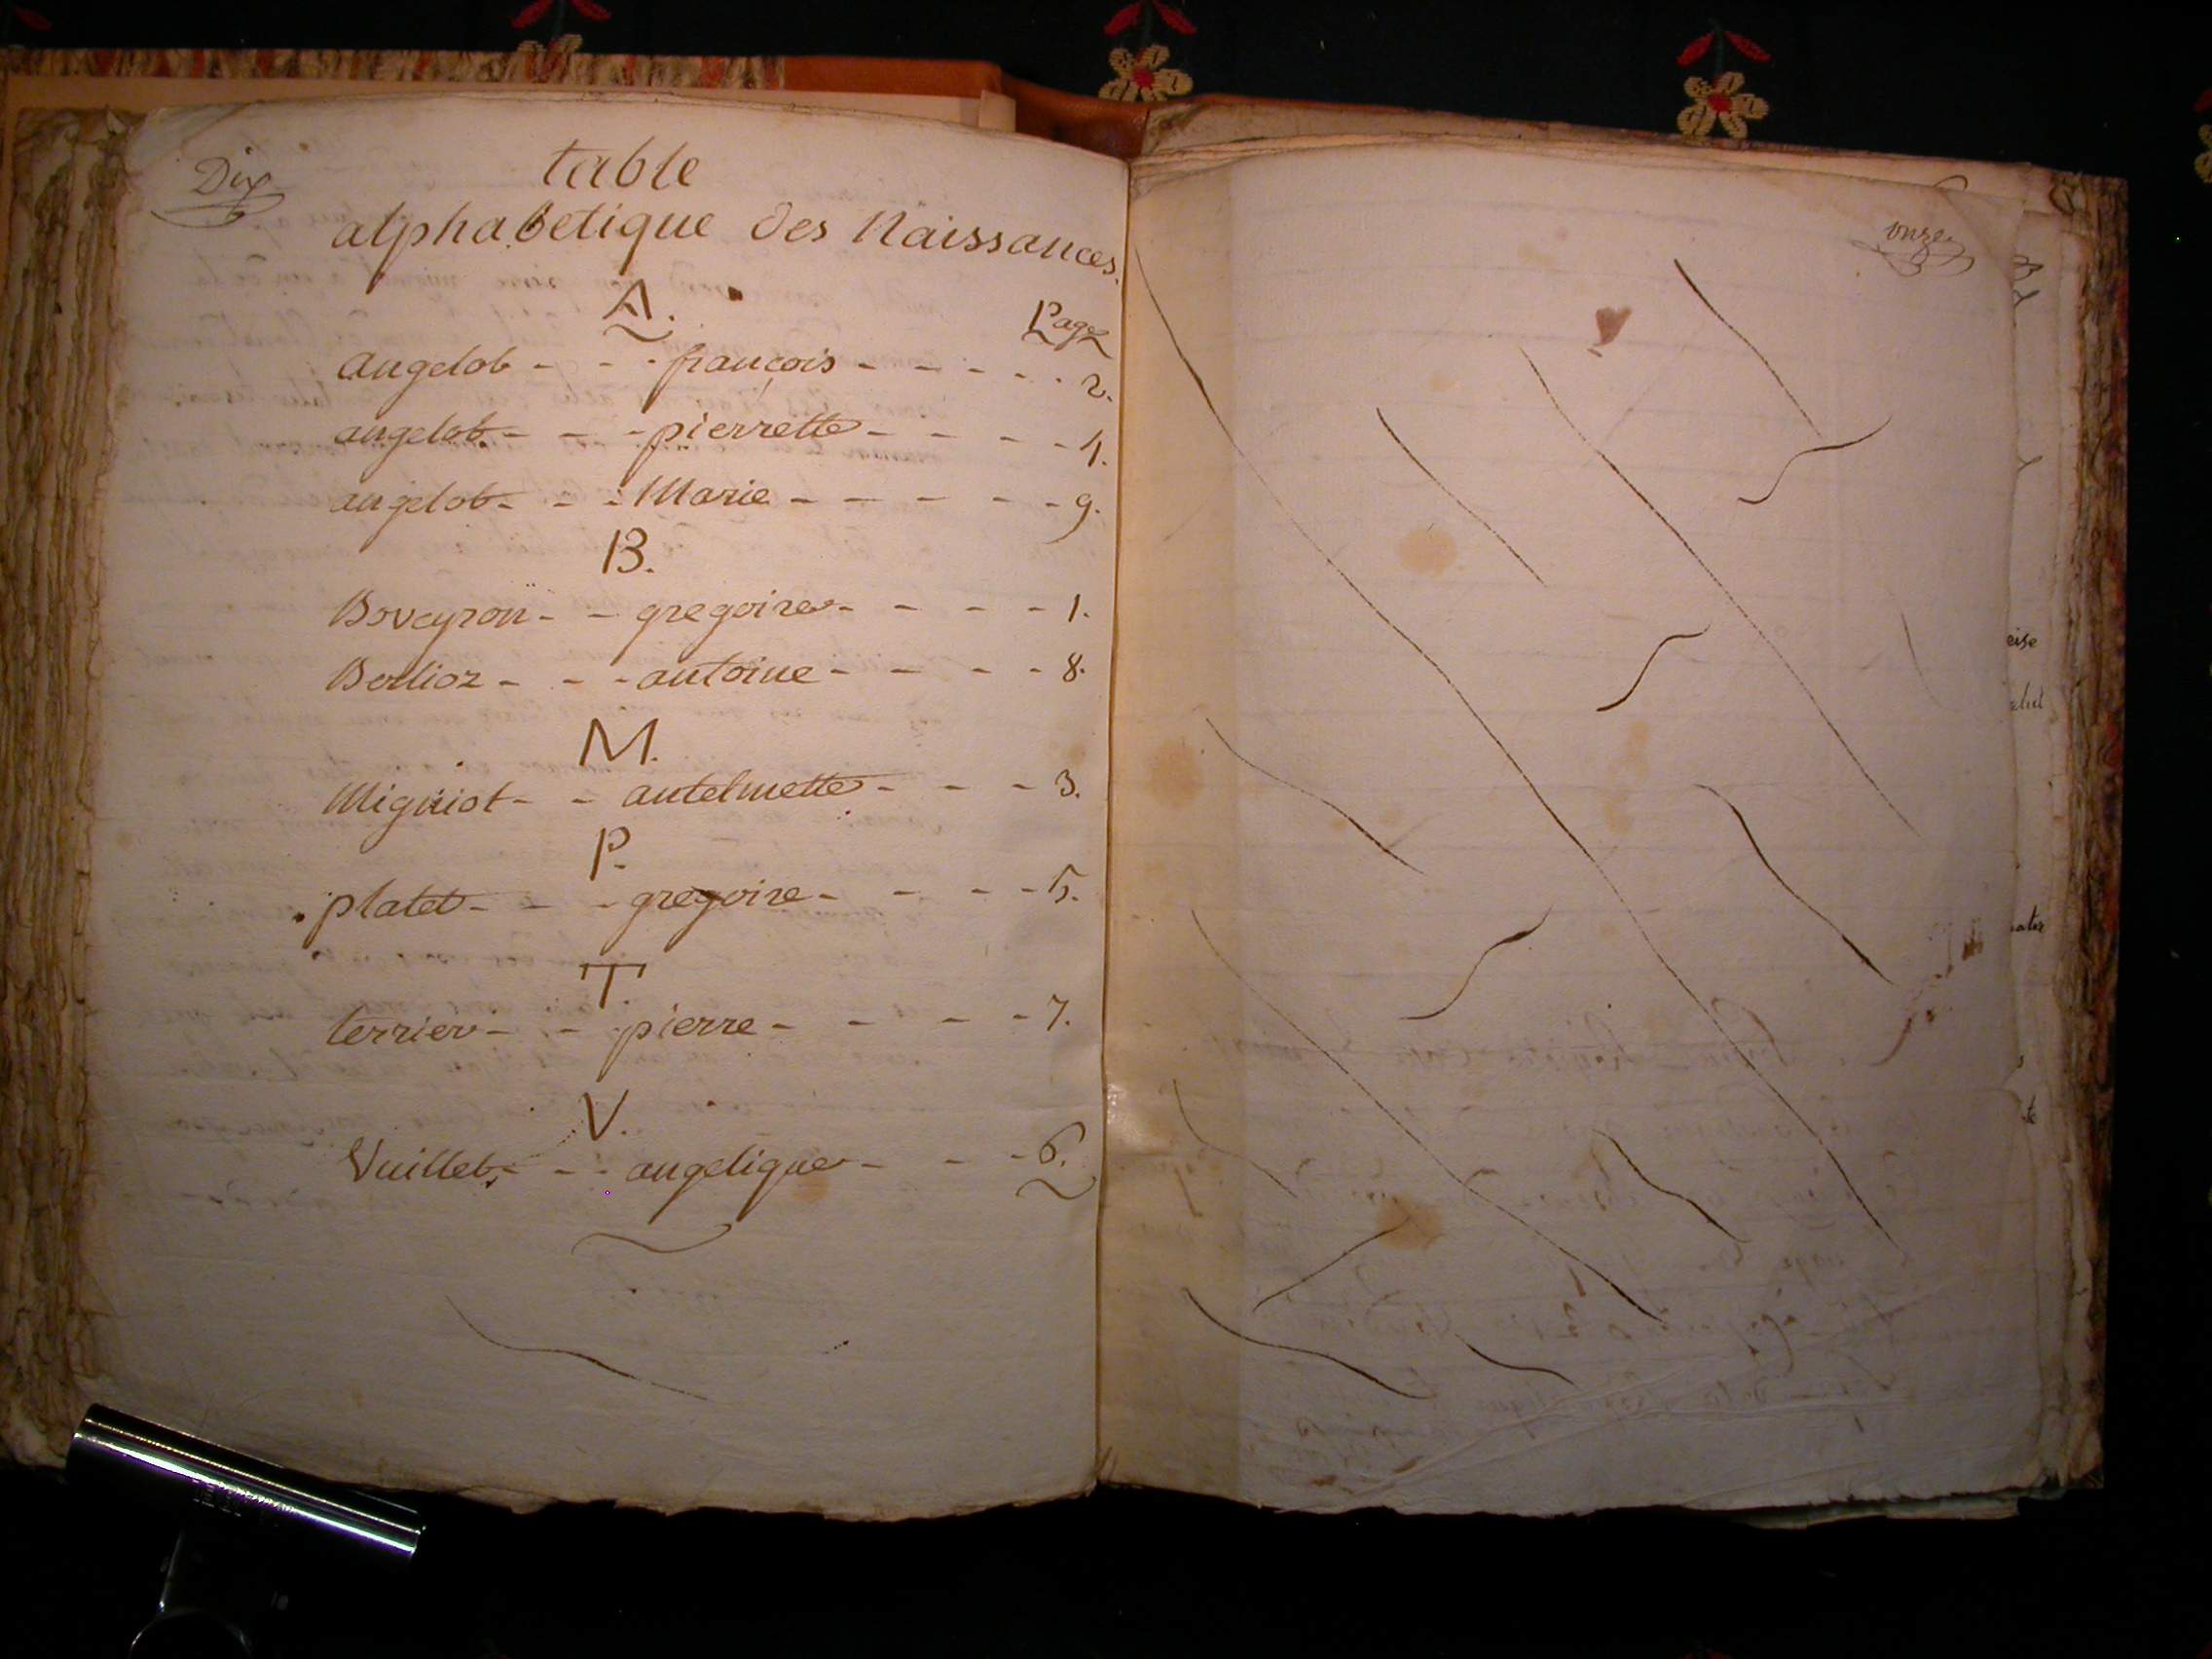 Dix
table
alphabetique des Naissances.
A.
Page
angelot - - - françois - - - - - 2.
angelot - - - pierrette - - - - - 4.
angelot - - - Marie - - - - - 9.
B.
Boveyron - - gregoire - - - - 1.
Berlioz - - - antoine - - - - 8.
M.
Migniot - - antelmette - - - 3.
P.
platet - - - gregoire - - - - 5.
T.
terrier - - pierre - - - - 7.
V.
Vuillet - - - angelique - - - 6.
onze